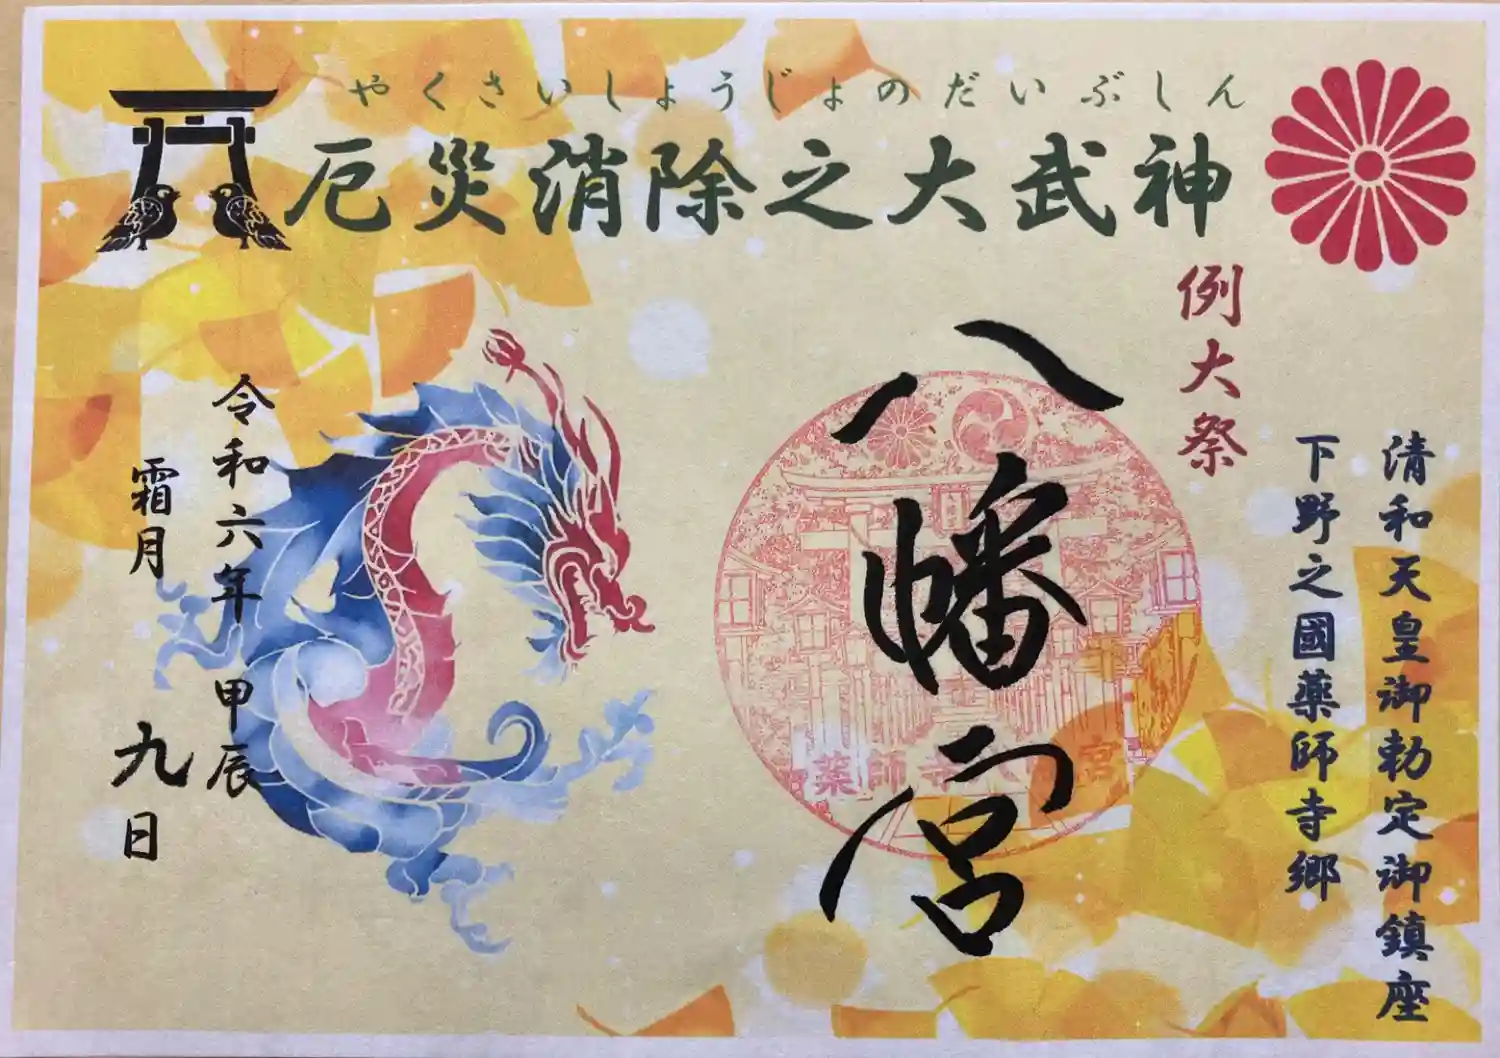 やくさいしょうじょのだいぶしん
厄災消除之大武神
清和天皇御勅定御鎮座
下野之國薬師寺郷
例大祭
八幡宮
薬師寺八幡宮
令和六年甲辰
霜月
九日